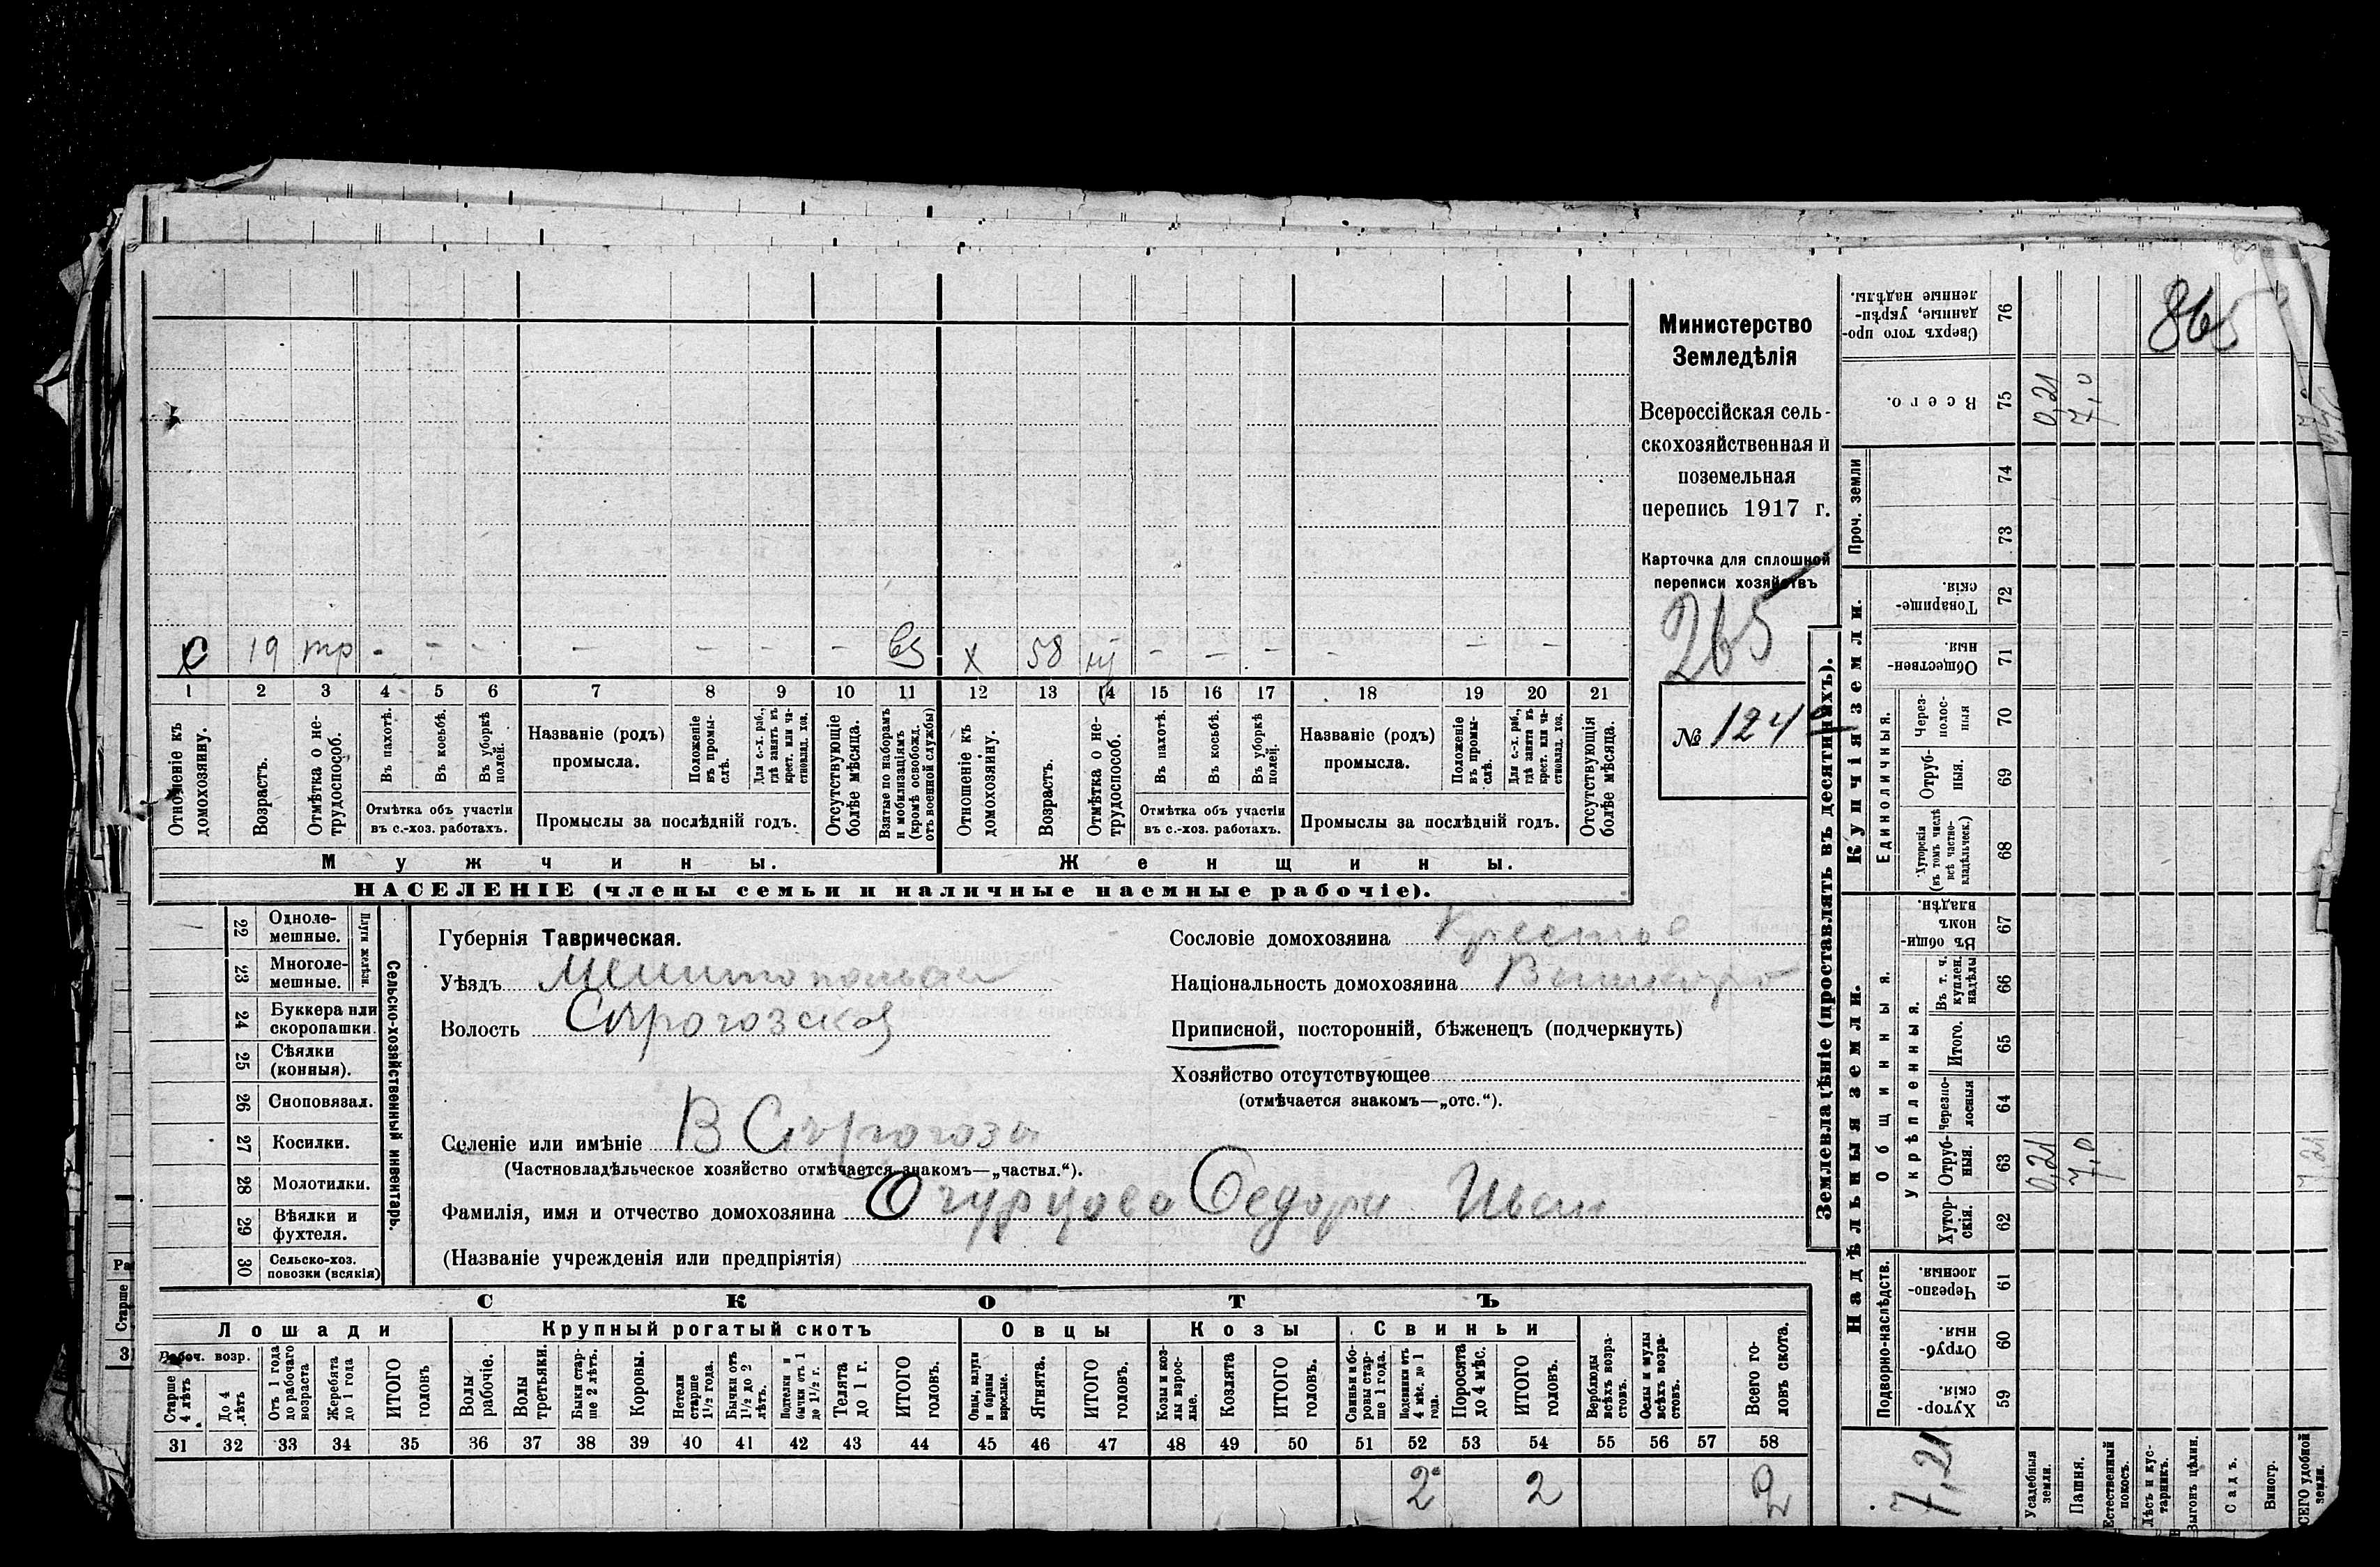 865
Министерство
Земледѣлія
Всероссійская сель-
скохозяйственная и
поземельная
перепись 1917 г.
Карточка для сплошной
переписи хозяйствъ
265
№ 124
19 тр - - - - - - - вз х 58 - - - - - -
1 2 3 4 5 6 7 8 9 10 11 12 13 14 15 16 17 18 19 20 21
Отношеніе къ домохозяину.
Возрастъ.
Отмѣтка о не-трудоспособ.
Въ пахотѣ.
Въ косьбѣ.
Въ уборкѣ полей.
Отмѣтка объ участіи
въ с.-хоз. работахъ.
Названіе (родъ)
промысла.
Положеніе въ промы-слѣ.
Для с.-х. раб., гдѣ занятъ въ крест. или ча-стновлад. хоз.
Промыслы за послѣдній годъ.
Отсутствующіе болѣе мѣсяца.
Взятые по наборамъ и мобилизаціямъ (кромѣ освобожд. отъ военной службы)
Отношеніе къ домохозяину.
Возрастъ.
Отмѣтка о не-трудоспособ.
Въ пахотѣ.
Въ косьбѣ.
Въ уборкѣ полей.
Отмѣтка объ участіи
въ с.-хоз. работахъ.
Названіе (родъ)
промысла.
Положеніе въ промы-слѣ.
Для с.-х. раб., гдѣ занята въ крест. или ча-стновлад. хоз.
Промыслы за послѣдній годъ.
Отсутствующія болѣе мѣсяца.
Мужчины.
Женщины.
НАСЕЛЕНІЕ (члены семьи и наличные наемные рабочіе).
22 Одноле-мешные.
23 Многоле-мешные.
Плуги желѣзн.
24 Буккера или скоропашки.
25 Сѣялки (конныя).
26 Сноповязал.
27 Косилки.
28 Молотилки.
29 Вѣялки и фухтеля.
30 Сельско-хоз. повозки (всякія)
Сельско-хозяйственный инвентарь.
Губернія Таврическая.
Уѣздъ Мелитопольскій
Волость Сѣрогозская
Селеніе или имѣніе В Сѣрогозы
(Частновладѣльческое хозяйство отмѣчается знакомъ—„частвл.“).
Фамилія, имя и отчество домохозяина Огурцова Федора Иван
(Названіе учрежденія или предпріятія)
Сословіе домохозяина Крест
Національность домохозяина
Приписной, посторонній, бѣженецъ (подчеркнуть)
Хозяйство отсутствующее
(отмѣчается знакомъ—„отс.“).
СКОТЪ
Лошади
Крупный рогатый скотъ
Овцы
Козы
Свиньи
Рабоч. возр.
Старше 4 лѣтъ
До 4 лѣтъ
Отъ 1 года до рабочаго возраста
Жеребята до 1 года
ИТОГО головъ
Волы рабочіе.
Волы третьяки.
Быки стар-ше 2 лѣтъ.
Коровы.
Нетели старше 1½ года.
Бычки отъ 1½ до 2 лѣтъ.
Подтелки и бычки отъ 1 до 1½ г.
Телята до 1 г.
ИТОГО головъ.
Овцы, валухи и бараны взрослые.
Ягнята.
ИТОГО головъ.
Козы и коз-лы взрос-лые.
Козлята
ИТОГО головъ.
Свиньи и бо-ровы стар-ше 1 года.
Подсвинки отъ 4 мѣс. до 1 года.
Поросята до 4 мѣс.
ИТОГО головъ.
Верблюды всѣхъ возра-стовъ.
Ослы и мулы всѣхъ возра-стовъ.
Всего го-ловъ скота.
31 32 33 34 35 36 37 38 39 40 41 42 43 44 45 46 47 48 49 50 51 52 53 54 55 56 57 58
2 2 2
Землевладѣніе (проставлять въ десятинахъ).
Сверхъ того про-данные, укрѣп-ленные надѣлы. 76
Всего. 75 0,21 7,0
Проч. земли 74 73
Купчія земли.
Товарище-скія. 72
Обществен-ныя. 71
Единоличныя.
Через-полос-ныя 70
Отруб-ныя. 69
Хуторскія (въ томъ числѣ всѣ частно-владѣльческ.) 68
Надѣльныя земли.
Общинныя.
Въ общи-номъ владѣн. 67
Укрѣпленныя.
Въ т. ч. куплен. надѣлы 66
Итого. 65
Черезпо-лосныя 64
Отруб-ныя. 63 0,21 7,0 7,21
Хутор-скія. 62
Подворно-наслѣдств.
Черезпо-лосныя. 61
Отруб-ныя. 60
Хутор-скія. 59
7,21
Усадебныя земли.
Пашня.
Естественный покосъ.
Лѣсъ и кус-тарникъ.
Выгонъ цѣлин.
Садъ.
Виногр.
СЕГО удобной земли.
Ра
Старше
3